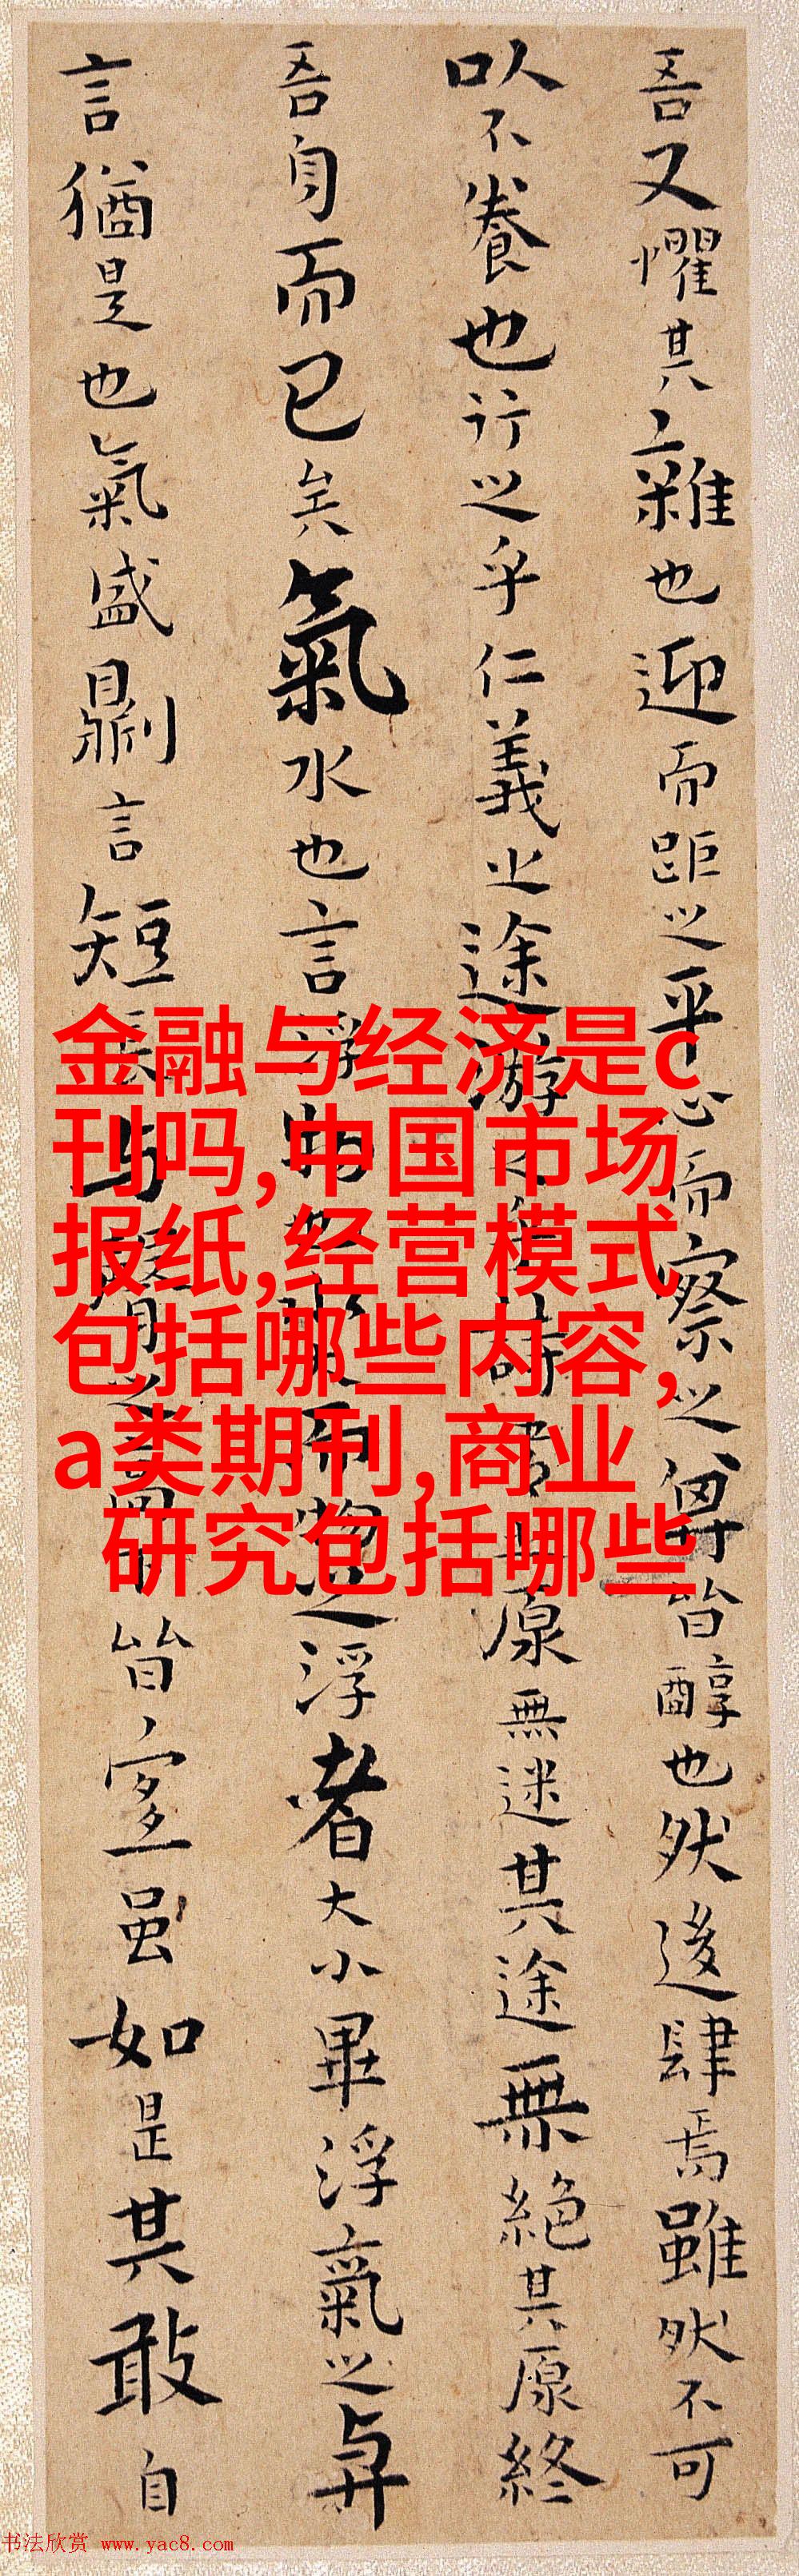 吾又懼其雜也迎而距之平心而察之皆醇也然後肆焉雖然不可
以不養也行之乎仁義之途游之乎詩書之原無迷其途無絕其原終
吾身而已矣氣水也言浮物也水大而物之浮者大小畢浮氣之與
言猶是也氣盛則言短長与聲之高下皆宜虽如是其敢自
金融与经济是c
刊吗,中国市场
报纸,经营模式
包括哪些内容,
a类期刊,商业
研究包括哪些
书法欣赏 www.yac8.com